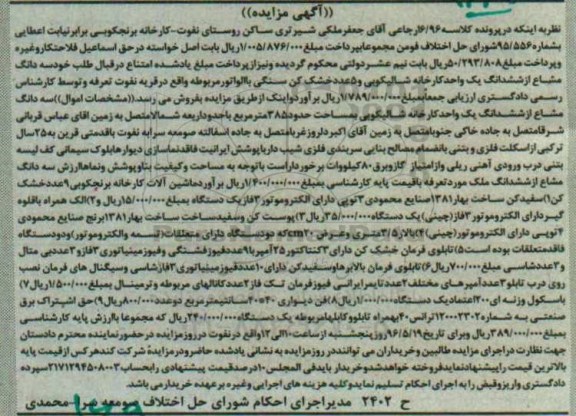 ((آگهی مزایده))
نظر به اینکه در پرونده کلاسه ۶/۹۶ اجرایی آقای جعفر ملکی شیر تری ساکن روستای نفوت-کارخانه برنجکوبی برابر نیابت اعطایی
بشماره ۹۵/۵۵۶ شورای حل اختلاف فومن مجموعا بپرداخت مبلغ ۱/۰۰۵/۸۷۶/۰۰۰ ریال بابت اصل خواسته در حق اسماعیل فلاحتکار وغیره
وپرداخت مبلغ ۵۰/۲۹۳/۸۰۸ ریال بابت نیم عشر دولتی محکوم گردیده ونیز از پرداخت مبلغ یاد شده امتناع در قبال طلب خود سه دانگ
مشاع از ششدانگ یک واحد کارخانه شالیکوبی و عدد خشک کن سنگی با الواتور مربوطه واقع در قریه نفوت تعرفه وتوسط کارشناس
رسمی دادگستری ارزیابی جمعا بمبلغ ۱/۷۸۹/۰۰۰/۰۰۰ ریال برآورد واینک از طریق مزایده بفروش می رسد.((مشخصات اموال)) سه دانگ
مشاع از ششدانگ یک واحد کارخانه شالیکوبی به مساحت حدود ۳۸۵ متر مربع با حدود اربعه شمالا متصل به زمین آقای عباس قربانی
شرقا متصل به جاده خاکی جنوبا متصل به زمین آقای اکبر دلروز غربا متصل به جاده اسفالته صومعه سرا به نفوت باقدمتی قرین به ۲۵ سال
ترکیبی از اسکلت فلزی و بتنی بانضمام مصالح بنایی سربندی فلزی شیب دار با پوشش ایرانیت فاقد نماسازی دیوارها بلوک سیمانی کف لیسه
بتنی درب ورودی آهنی ریلی و از امتیاز گاز وبرق ۸۰ کیلووات برخوردار است باتوجه به مساحت و کیفیت بنا و پوشش ونماها ارزش سه دانگ
مشاع از ششدانگ ملک مورد تعرفه باقیمت پایه کارشناسی بمبلغ ۱/۴۰۰/۰۰۰/۰۰۰ ریال برآورد ماشین آلات کارخانه برنجکوبی ۹ عدد خشک
کن ۱)سفید کن ساخت بهار ۱۳۸۱ صنایع محمودی ۳ توپی دارای الکتروموتور ۳ فاز یک دستگاه بمبلغ ۱۵/۰۰۰/۰۰۰ ریال و ۲)الک همراه با قلوه
گیر دارای الکتروموتور ۳ فاز(چینی) یک دستگاه ۳۵/۰۰۰/۰۰۰ ریال ۳)پوست کن وسفید ساخت ساخت بهار ۱۳۸۱ برنج صنایع محمودی
۴ توپی دارای الکتروموتور (چینی) ۴)بالابر ۳/۵ متری وعرض ۳۰ cm که دو دستگاه دارای متعلقات (تسمه والکتروموتور) و دو دستگاه
فاقد متعلقات بوده است ۵)تابلوی فرمان خشک کن دارای ۳ کنتاکتور ۲۵ آمپر با ۹ عدد فیوز فشنگی وفیوز مینیاتوری ۳ فاز و ۳ عدد بی متال
و ۳ عدد شاسی مبلغ ۷۰۰/۰۰۰ ریال ۶)تابلوی فرمان بالابر هاوسفید کن دارای ۱۰ عدد فیوز مینیاتوری ۳ فاز شاسی وسیگنال های فرمان نصب
روی درب تابلو ۳ عدد آمپر های مختلف ۳ عدد تایمر ایرانی فیوز فرمان تک فاز ۲ عدد کانالهای مربوطه و ترمینال بمبلغ ۱/۵۰۰/۰۰۰ ریال ۷)
باسکول وزنه ای ۲۰۰ اعتماد یک دستگاه ۱/۰۰۰/۰۰۰ ریال ۸)فن دیواری ۴۰*۴۰ سانتیمتر مربع دو عدد ۸۰۰/۰۰۰ ریال ۹)حق اشتراک برق
صنعتی به شماره ۱۲۰۰۰۲۳۰۲ ترانس ۴۰ بهمراه تابلو وکابلها مربوطه یک دستگاه ۲۴۰/۰۰۰/۰۰۰ ریال که مجموعا با ارزش پایه کارشناسی
بمبلغ ۳۸۹/۰۰۰/۰۰۰ ریال وبرای تاریخ ۹۶/۵/۱۹ روز پنجشنبه از ساعت ۱۰ الی ۱۲ واقع در نفوت در روز مزایده در حضور نماینده محترم دادستان
جهت نظارت در اجرای مزایده طالبین و خریداران می توانند در روز مزایده به نشانی یاد شده حاضر و در مزایده شرکت کنند هر کس از قیمت پایه
بالاترین قیمت را پیشنهاد نماید فروخته خواهد شد و خریدار باید فی المجلس ۱۰درصد قیمت پیشنهادی را بحساب ۲۱۷۱۲۹۴۵۰۸۰۰۳ سپرده
دادگستری واریز وقبض را به اجرای احکام تسلیم نماید وکلیه هزینه های اجرایی وغیره بر عهده خریدار می باشد.
ح ۲۴۰۲ مدیر اجرای احکام شورای حل اختلاف صومعه سرا- محمدی